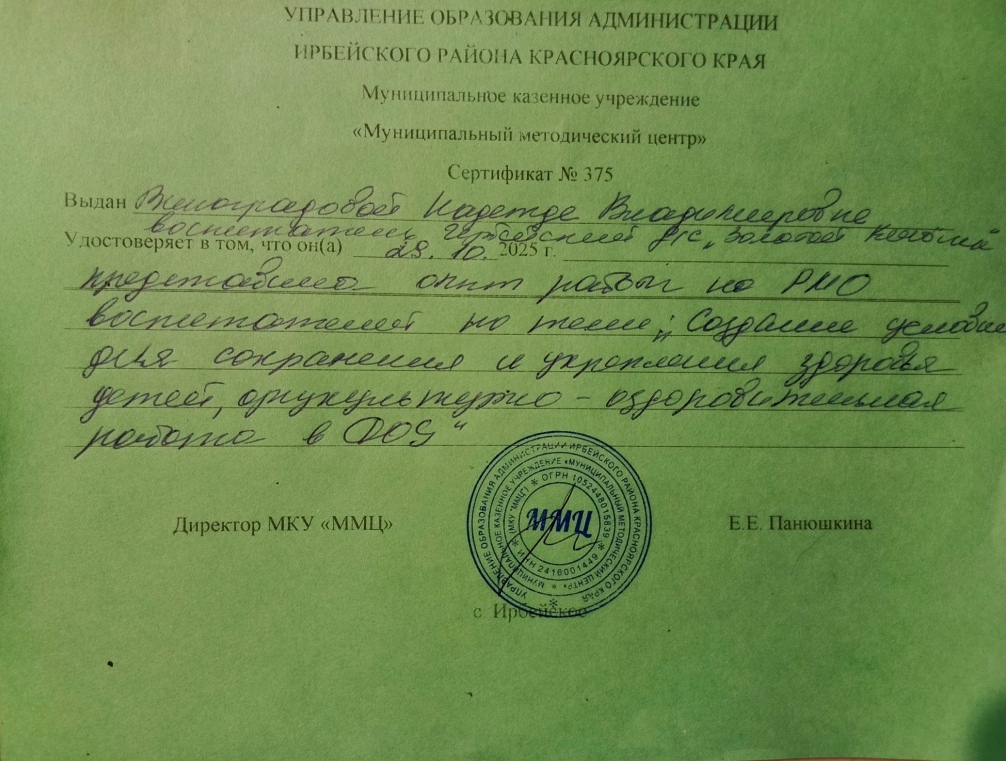 УПРАВЛЕНИЕ ОБРАЗОВАНИЯ АДМИНИСТРАЦИИ
ИРБЕЙСКОГО РАЙОНА КРАСНОЯРСКОГО КРАЯ
Муниципальное казенное учреждение
«Муниципальный методический центр»
Сертификат № 375
Выдан Виноградовой Надежде Владимировне
воспитатель Ирбейский д/с „Золотой
Удостоверяет в том, что он(а) 29. 10. 2025 г.
представила опыт работы на РМО
воспитателей по теме: „Создание условий
для сохранения и укрепления здоровья
детей, физкультурно – оздоровительная
работа в ДОУ“
Директор МКУ «ММЦ»
Е.Е. Панюшкина
УПРАВЛЕНИЕ ОБРАЗОВАНИЯ АДМИНИСТРАЦИИ ИРБЕЙСКОГО РАЙОНА КРАСНОЯРСКОГО КРАЯ
МУНИЦИПАЛЬНОЕ КАЗЕННОЕ УЧРЕЖДЕНИЕ «МУНИЦИПАЛЬНЫЙ МЕТОДИЧЕСКИЙ ЦЕНТР»
(МКУ "ММЦ") * ОГРН 1052448015839 * ИНН 2416001449 *
ММЦ
с Ирбейское